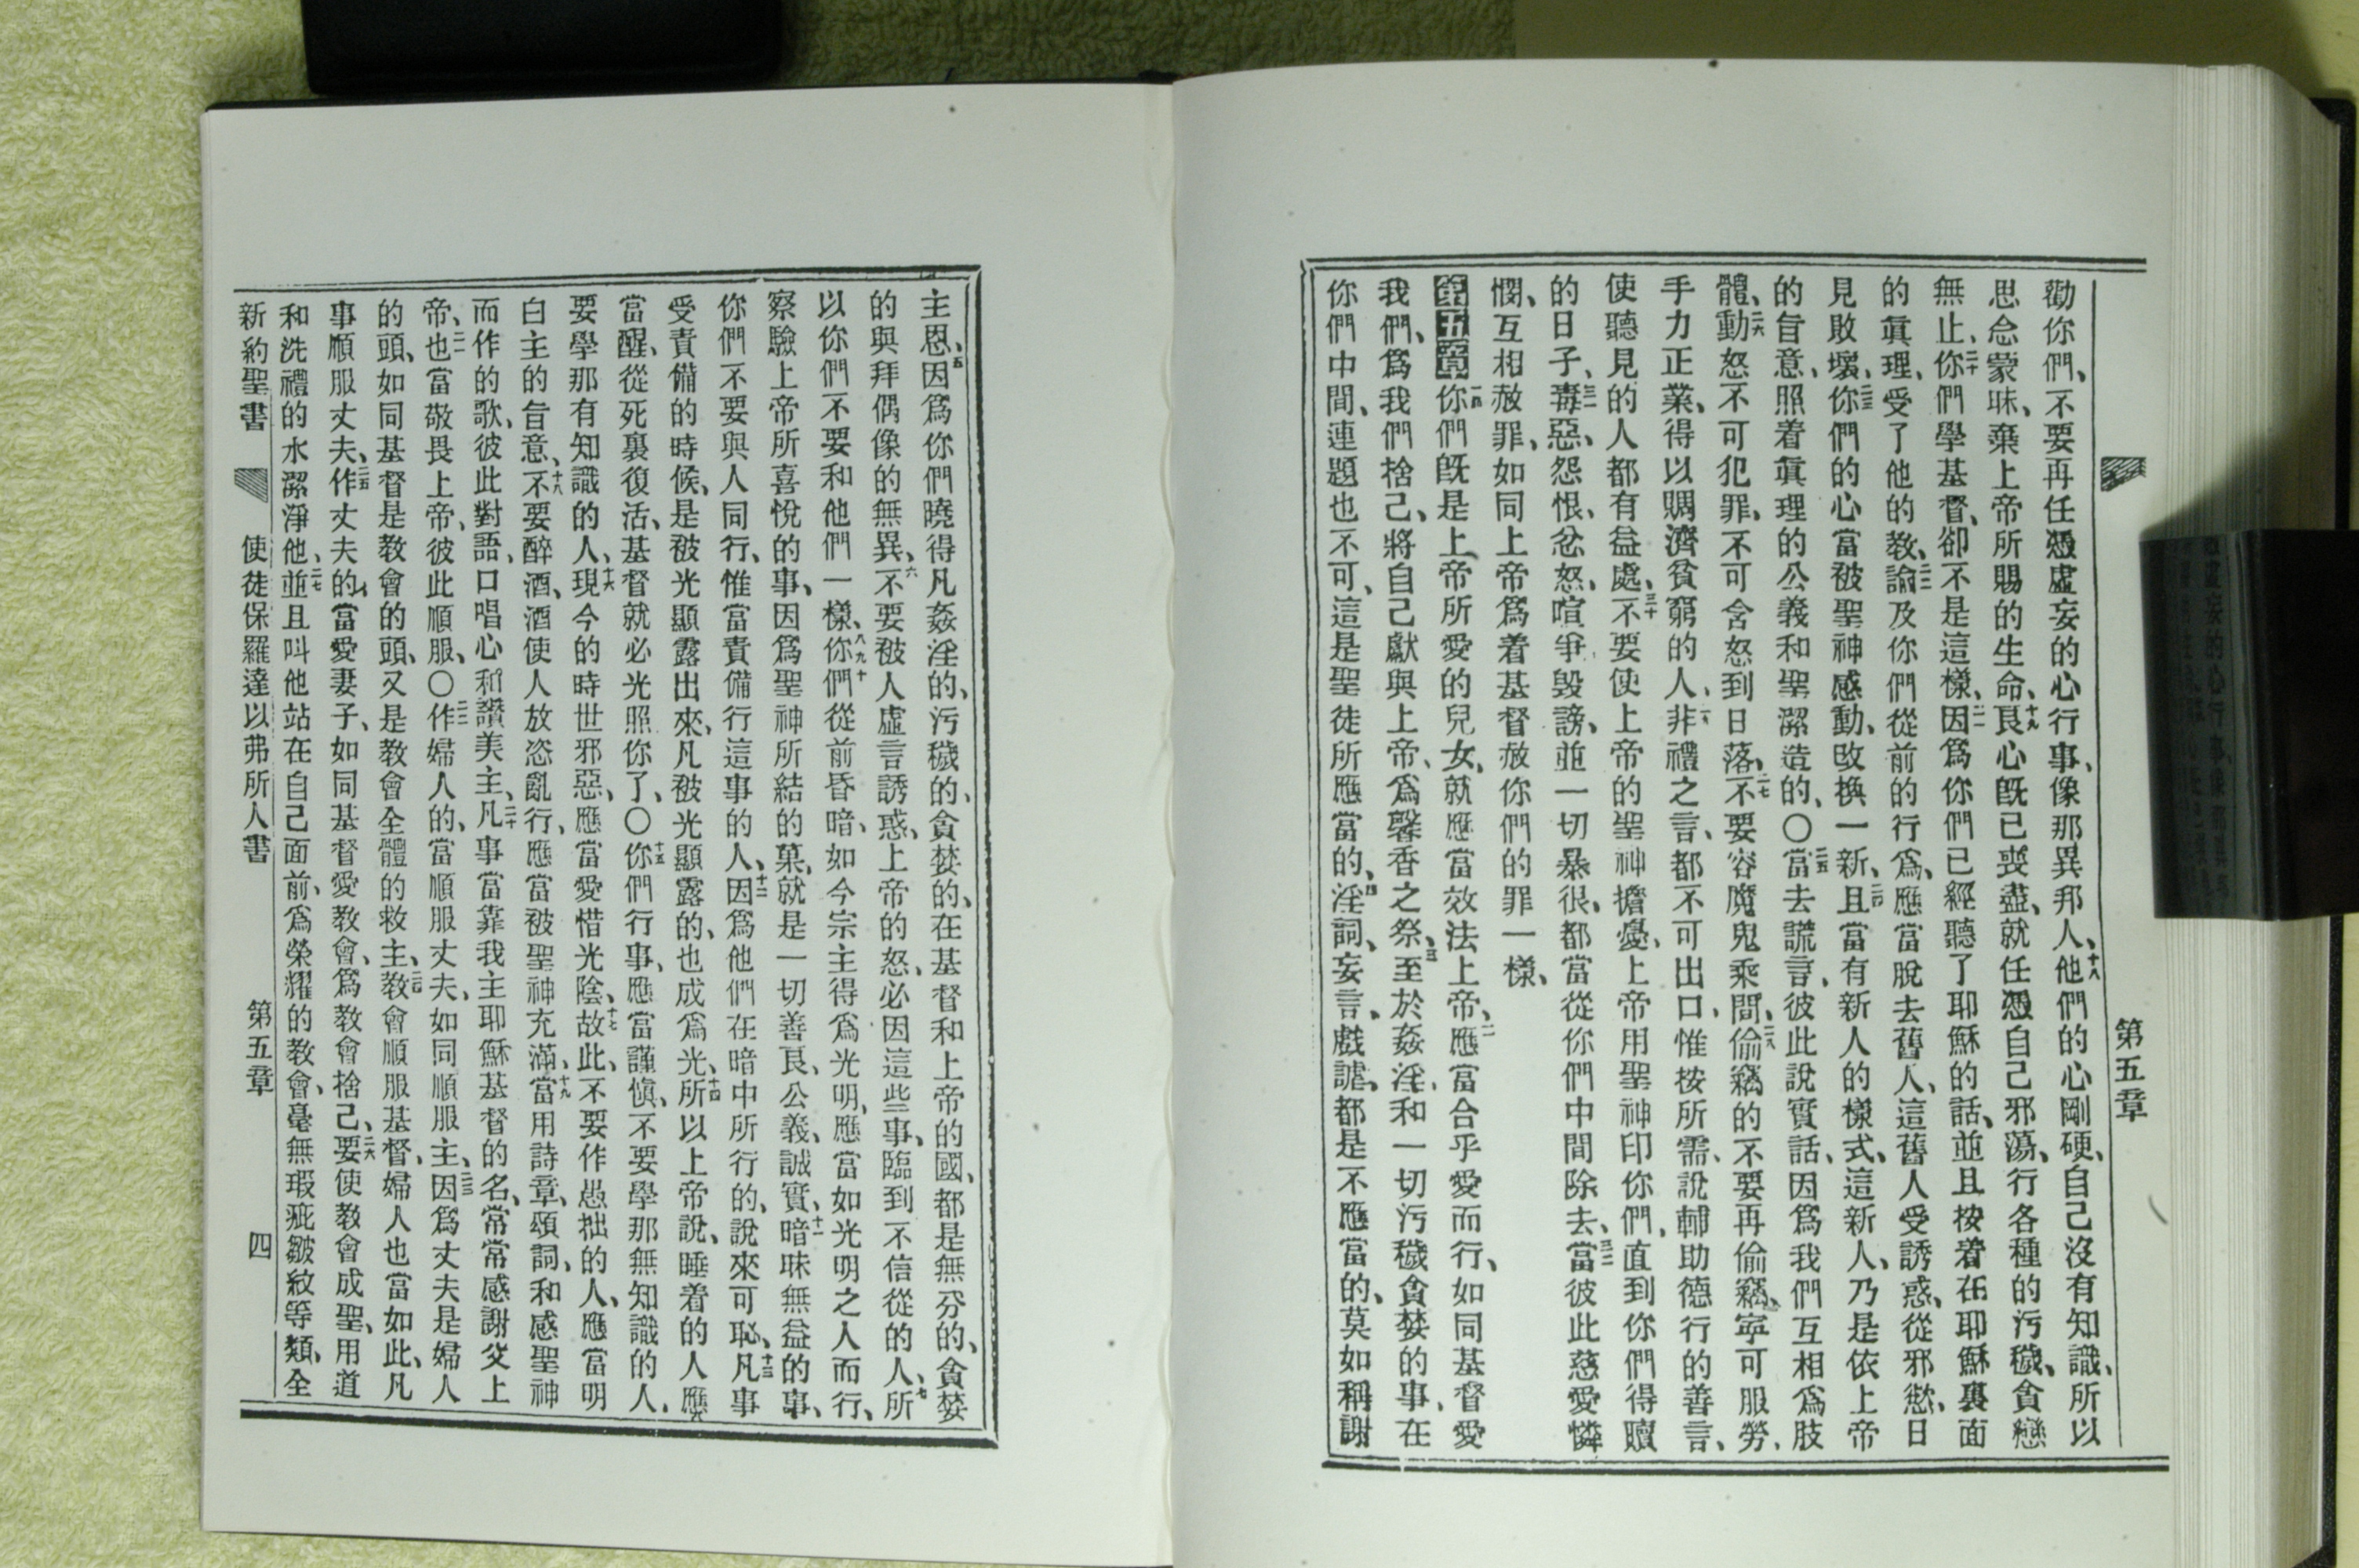 第五章
勸你們、不要再任憑虛妄的心行事、像那異邦人、十八他們的心剛硬、自己沒有知識、所以
思念蒙昧、棄上帝所賜的生命、十九良心旣已喪盡、就任憑自己邪蕩、行各種的污穢、貪戀
無止、二十你們學基督、卻不是這樣、二一因爲你們已經聽了耶穌的話、並且按着在耶穌裏面
的眞理、受了他的教、二二論及你們從前的行爲、應當脫去舊人、這舊人受誘惑、從邪慾、日
見敗壞、二三你們的心當被聖神感動、改換一新、二四且當有新人的樣式、這新人、乃是依上帝
的旨意、照着眞理的公義和聖潔造的、〇二五當去謊言、彼此說實話、因爲我們互相爲肢
體、二六動怒不可犯罪、不可含怒到日落、二七不要容魔鬼乘間、二八偷竊的不要再偷竊、寧可服勞、
手力正業、得以賙濟貧窮的人、二九非禮之言、都不可出口、惟按所需、說輔助德行的善言、
使聽見的人都有益處、三十不要使上帝的聖神擔憂、上帝用聖神印你們、直到你們得贖
的日子、三一毒惡、怨恨、忿怒、喧爭、毀謗、並一切暴很、都當從你們中間除去、三二當彼此慈愛憐
憫、互相赦罪、如同上帝爲着基督赦你們的罪一樣、
第五章一你們旣是上帝所愛的兒女、就應當效法上帝、二應當合乎愛而行、如同基督愛
我們、爲我們捨己、將自己獻與上帝、爲馨香之祭、三至於姦淫、和一切污穢貪婪的事、在
你們中間、連題也不可、這是聖徒所應當的、四淫詞、妄言、戲謔、都是不應當的、莫如稱謝
主恩、五因爲你們曉得凡姦淫的、污穢的、貪婪的、在基督和上帝的國、都是無分的、貪婪
的與拜偶像的無異、六不要被人虛言誘惑、上帝的怒、必因這些事、臨到不信從的人、七所
以你們不要和他們一樣、八九十你們從前昏暗、如今宗主得爲光明、應當如光明之人而行、
察驗上帝所喜悅的事、因爲聖神所結的菓、就是一切善良、公義、誠實、十一暗昧無益的事、
你們不要與人同行、惟當責備行這事的人、十二因爲他們在暗中所行的、說來可恥、十三凡事
受責備的時候、是被光顯露出來、凡被光顯露的、也成爲光、十四所以上帝說、睡着的人應
當醒、從死裏復活、基督就必光照你了、〇十五你們行事、應當謹愼、不要學那無知識的人、
要學那有知識的人、十六現今的時世邪惡、應當愛惜光陰、十七故此、不要作愚拙的人、應當明
白主的旨意、十八不要醉酒、酒使人放恣亂行、應當被聖神充滿、十九當用詩章、頌詞、和感聖神
而作的歌、彼此對語、口唱心和讚美主、二十凡事當靠我主耶穌基督的名、常常感謝父上
帝、二一也當敬畏上帝、彼此順服、〇二二作婦人的、當順服丈夫、如同順服主、二三因爲丈夫是婦人
的頭、如同基督是教會的頭、又是教會全體的救主、二四教會順服基督、婦人也當如此、凡
事順服丈夫、二五作丈夫的、當愛妻子、如同基督愛教會、爲教會捨己、二六要使教會成聖、用道
和洗禮的水潔淨他、二七並且叫他站在自己面前、爲榮耀的教會、毫無瑕疵皺紋等類、全
新約聖書 使徒保羅達以弗所人書 第五章 四